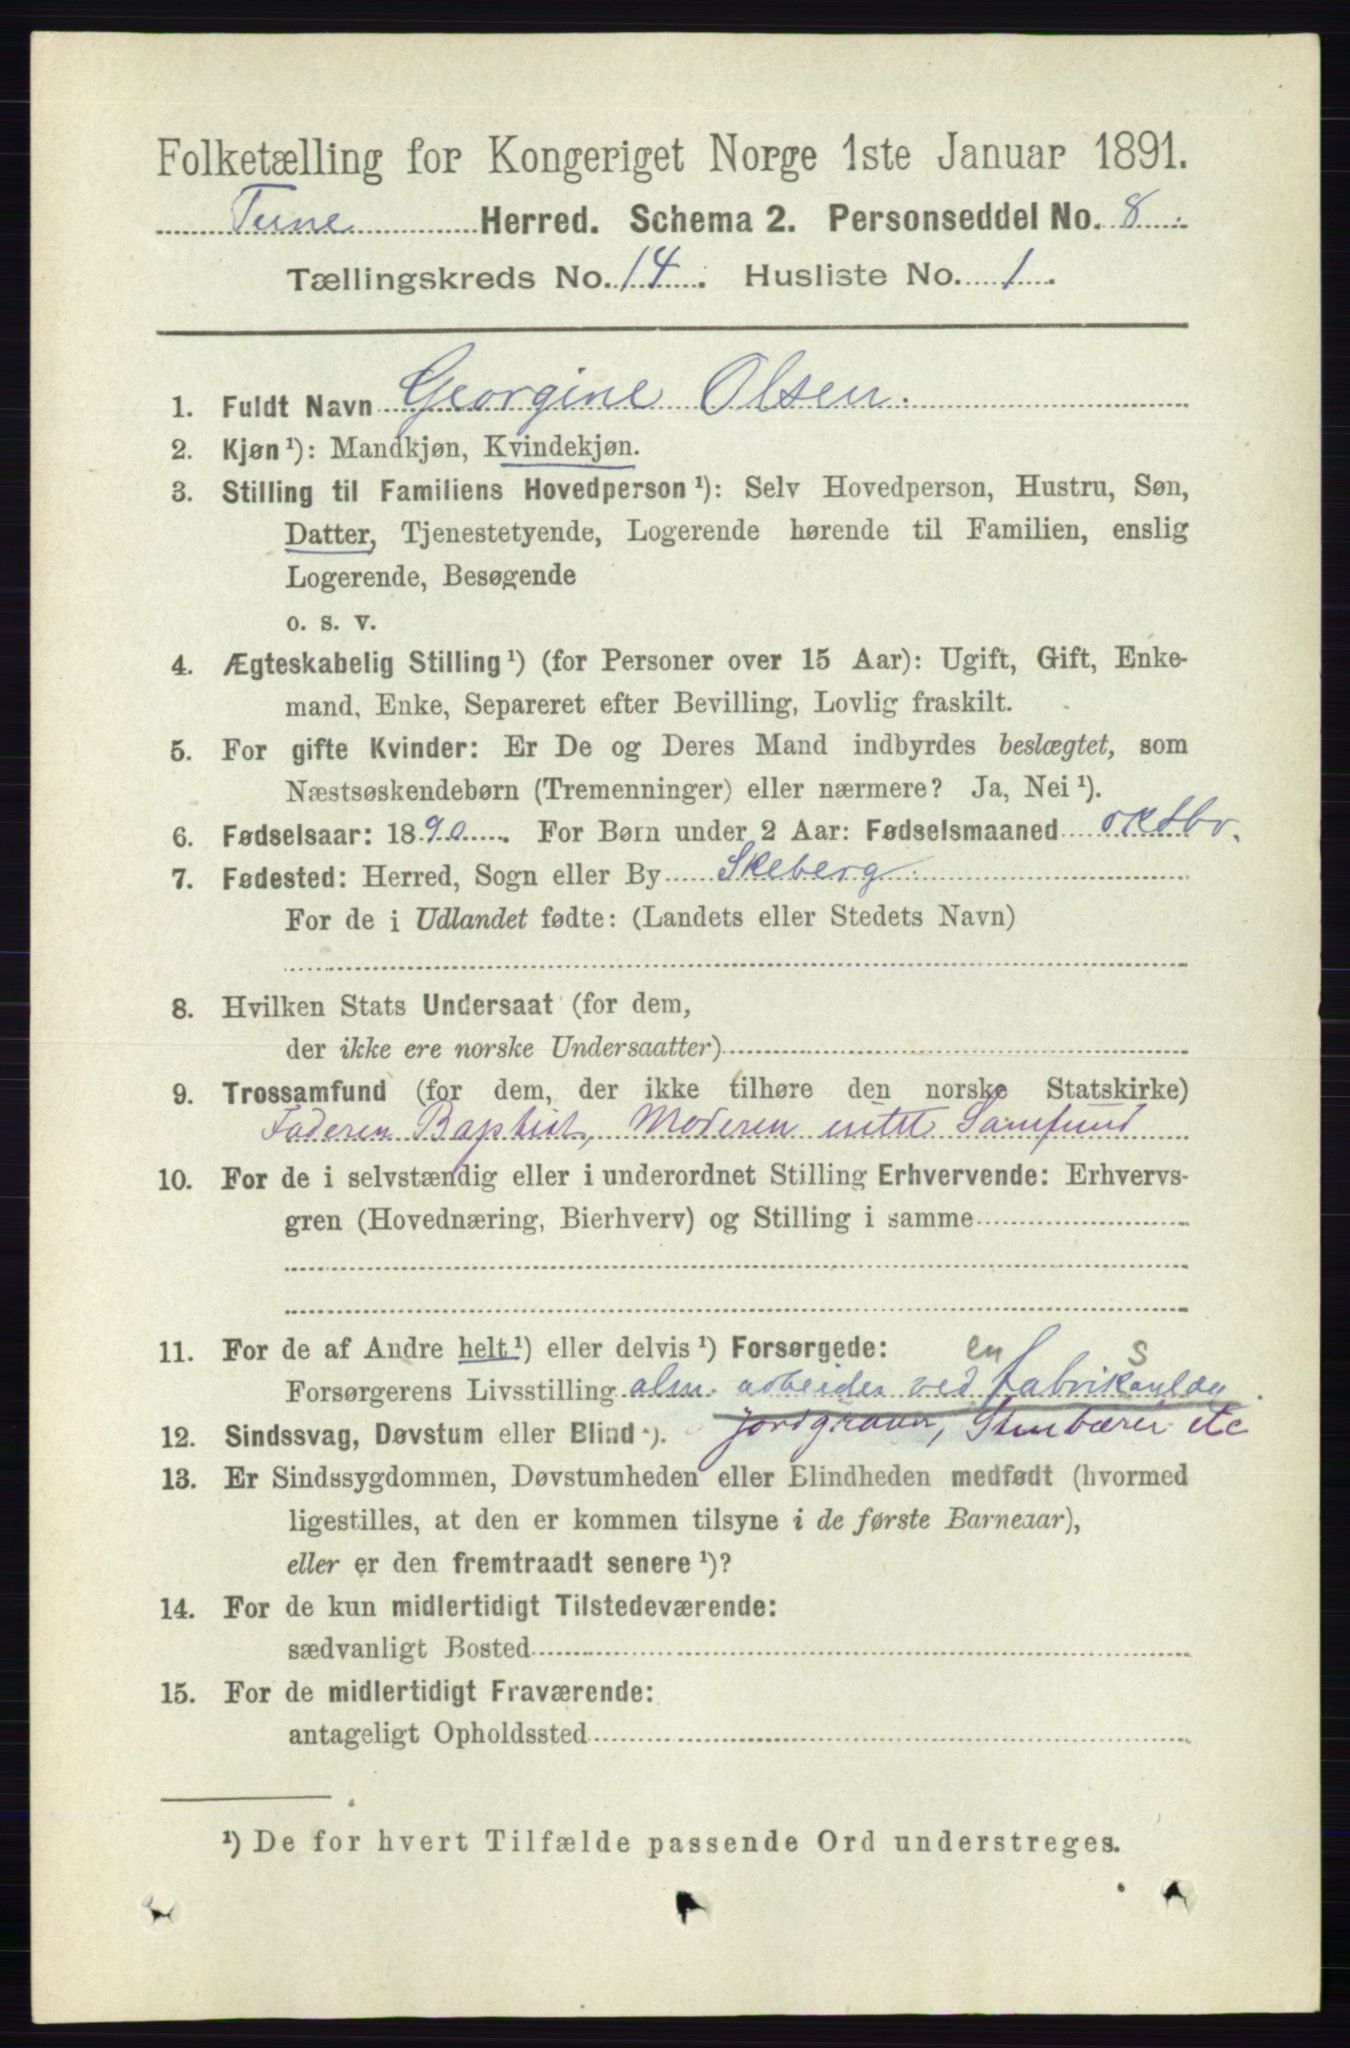 Folketælling for Kongeriget Norge 1ste Januar 1891.
Tune Herred. Schema 2. Personseddel No. 8.
Tællingskreds No. 14. Husliste No. 1.
1. Fuldt Navn Georgine Olsen.
2. Kjøn¹): Mandkjøn, Kvindekjøn.
3. Stilling til Familiens Hovedperson¹): Selv Hovedperson, Hustru, Søn,
Datter, Tjenestetyende, Logerende hørende til Familien, enslig
Logerende, Besøgende
o. s. v.
4. Ægteskabelig Stilling¹) (for Personer over 15 Aar): Ugift, Gift, Enke-
mand, Enke, Separeret efter Bevilling, Lovlig fraskilt.
5. For gifte Kvinder: Er De og Deres Mand indbyrdes beslægtet, som
Næstsøskendebørn (Tremenninger) eller nærmere? Ja, Nei¹).
6. Fødselsaar: 1890. For Børn under 2 Aar: Fødselsmaaned oktbr.
7. Fødested: Herred, Sogn eller By Skeberg
For de i Udlandet fødte: (Landets eller Stedets Navn)
8. Hvilken Stats Undersaat (for dem,
der ikke ere norske Undersaatter)
9. Trossamfund (for dem, der ikke tilhøre den norske Statskirke)
Faderen Baptist, Moderen intet Samfund
10. For de i selvstændig eller i underordnet Stilling Erhvervende: Erhvervs-
gren (Hovednæring, Bierhverv) og Stilling i samme
11. For de af Andre helt¹) eller delvis¹) Forsørgede: en s
Forsørgerens Livsstilling alm. arbeider ved fabrik
12. Sindssvag, Døvstum eller Blind¹). jordgraver, Stenbærer etc
13. Er Sindssygdommen, Døvstumheden eller Blindheden medfødt (hvormed
ligestilles, at den er kommen tilsyne i de første Barneaar),
eller er den fremtraadt senere¹)?
14. For de kun midlertidigt Tilstedeværende:
sædvanligt Bosted
15. For de midlertidigt Fraværende:
antageligt Opholdssted
¹) De for hvert Tilfælde passende Ord understreges.